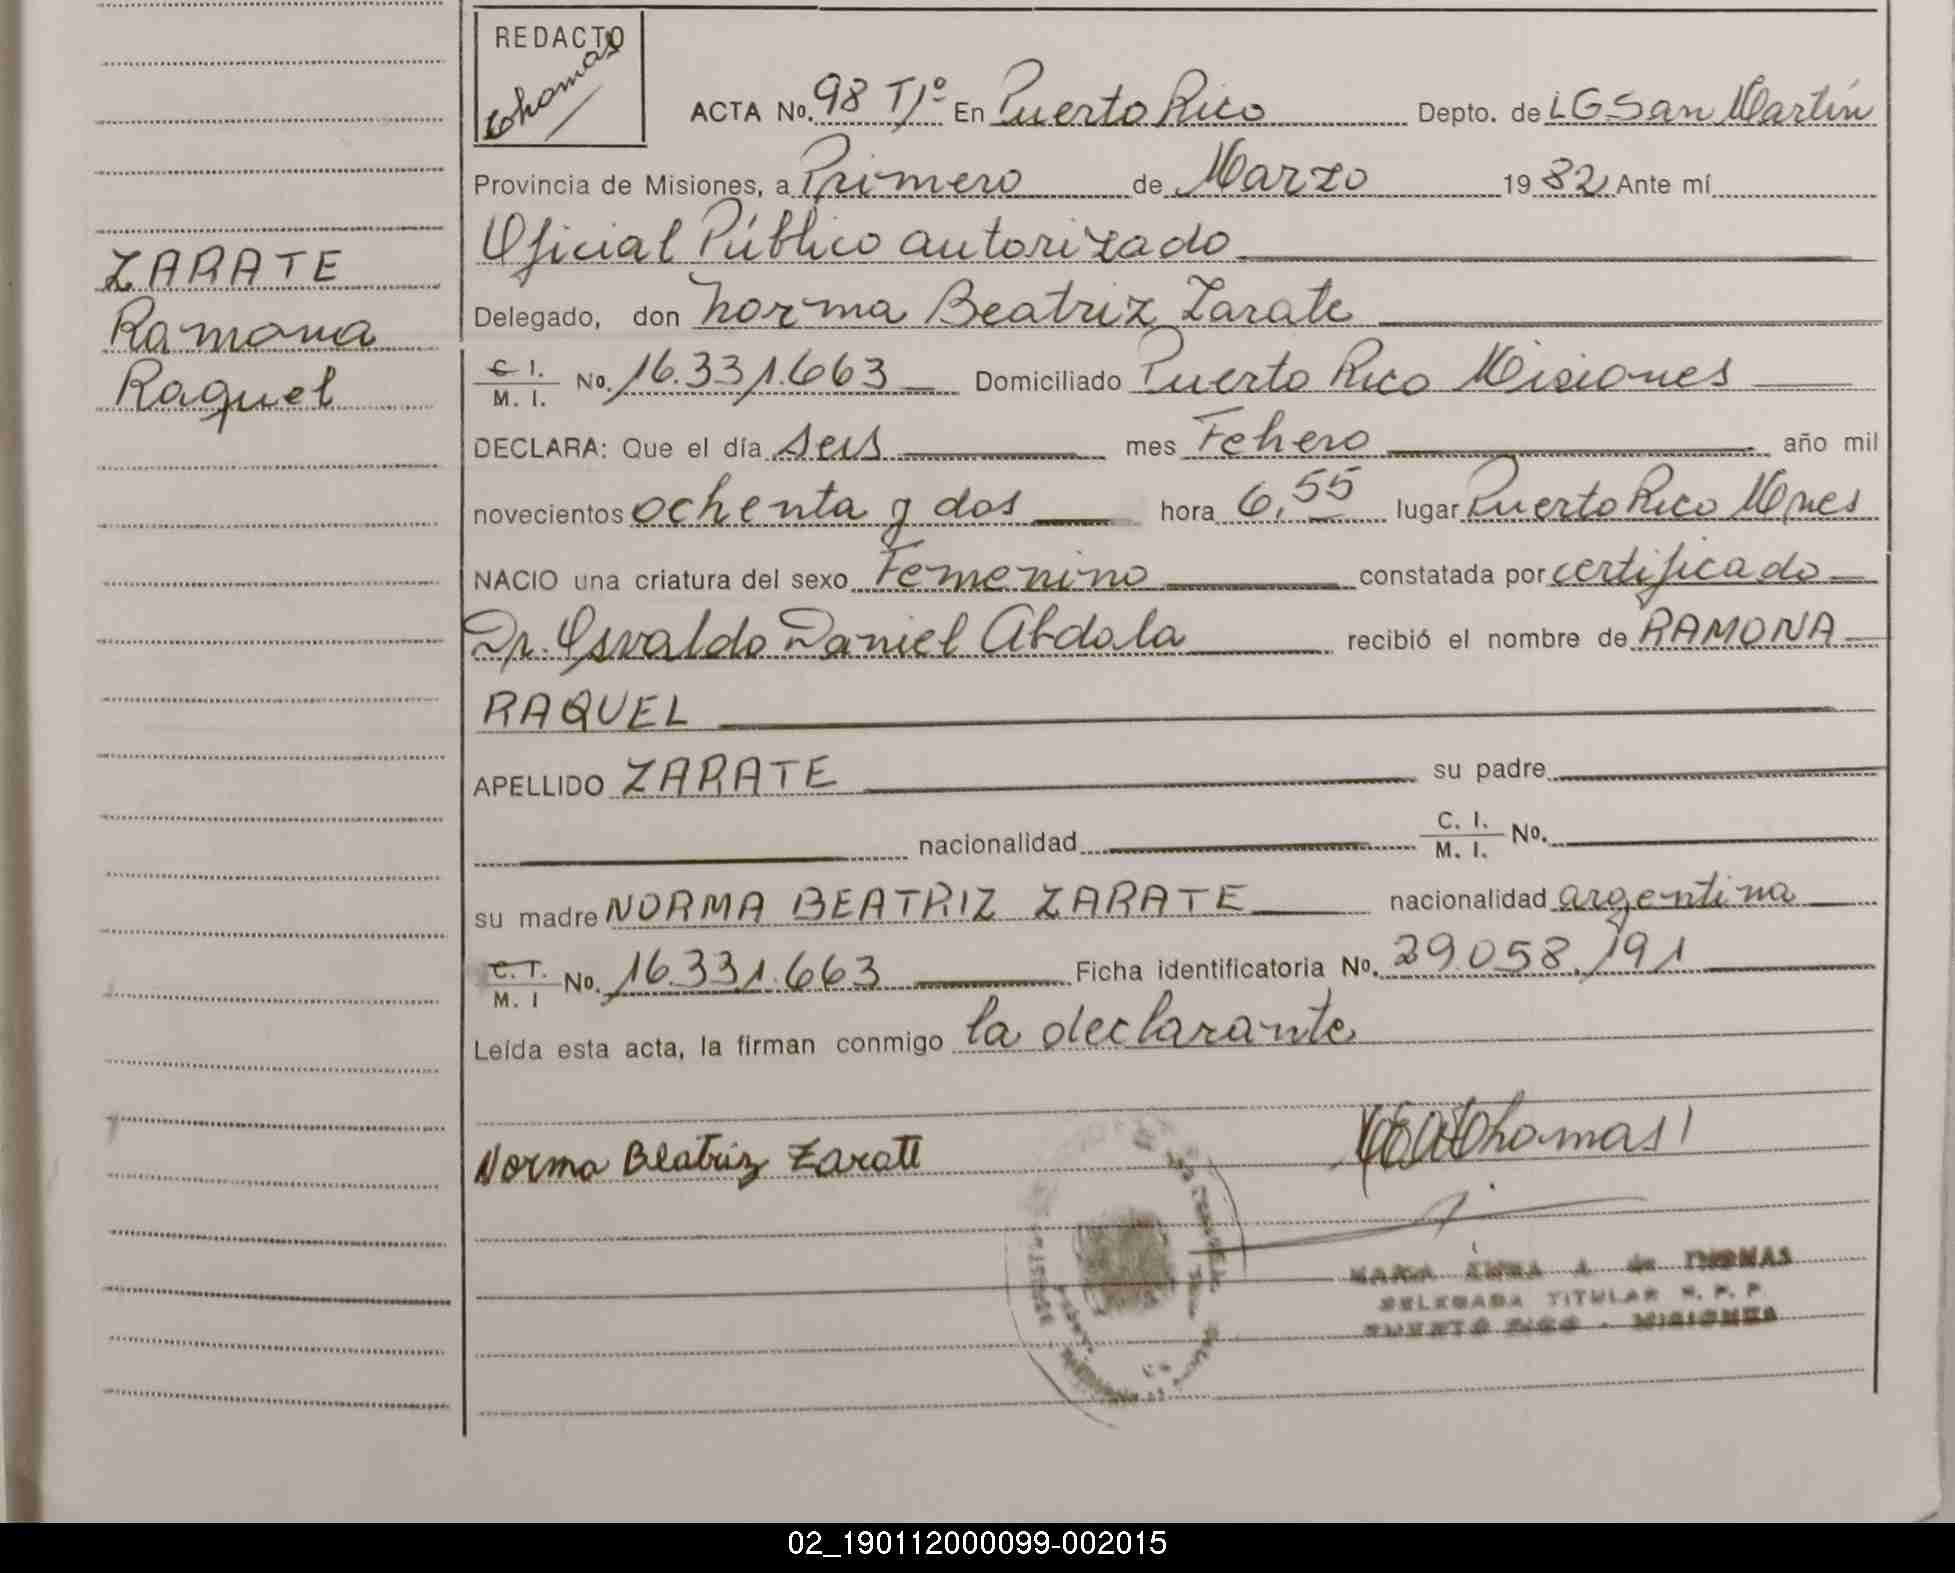 REDACTO
Thomas
ACTA No. 98 T1º En Puerto Rico Depto. de LG San Martín
Provincia de Misiones, a Primero de Marzo 1982 Ante mí
Oficial Público autorizado
ZARATE
Ramona
Raquel
Delegado, don Norma Beatriz Zarate
C. I. M. I. No. 16.331.663 Domiciliado Puerto Rico Misiones
DECLARA: Que el día seis mes Febrero año mil
novecientos ochenta y dos hora 6,55 lugar Puerto Rico Mnes
NACIO una criatura del sexo Femenino constatada por certificado
Dr. Osvaldo Daniel Abdala recibió el nombre de RAMONA
RAQUEL
APELLIDO ZARATE su padre
nacionalidad C. I. M. I. No.
su madre NORMA BEATRIZ ZARATE nacionalidad argentina
C. I. M. I No. 16.331.663 Ficha identificatoria No. 29.058.191
Leída esta acta, la firman conmigo la declarante
Norma Beatriz Zarate
Thomas
MARIA EMMA de THOMAS
DELEGADA TITULAR R. P. P
PUERTO RICO - MISIONES
02_190112000099-002015